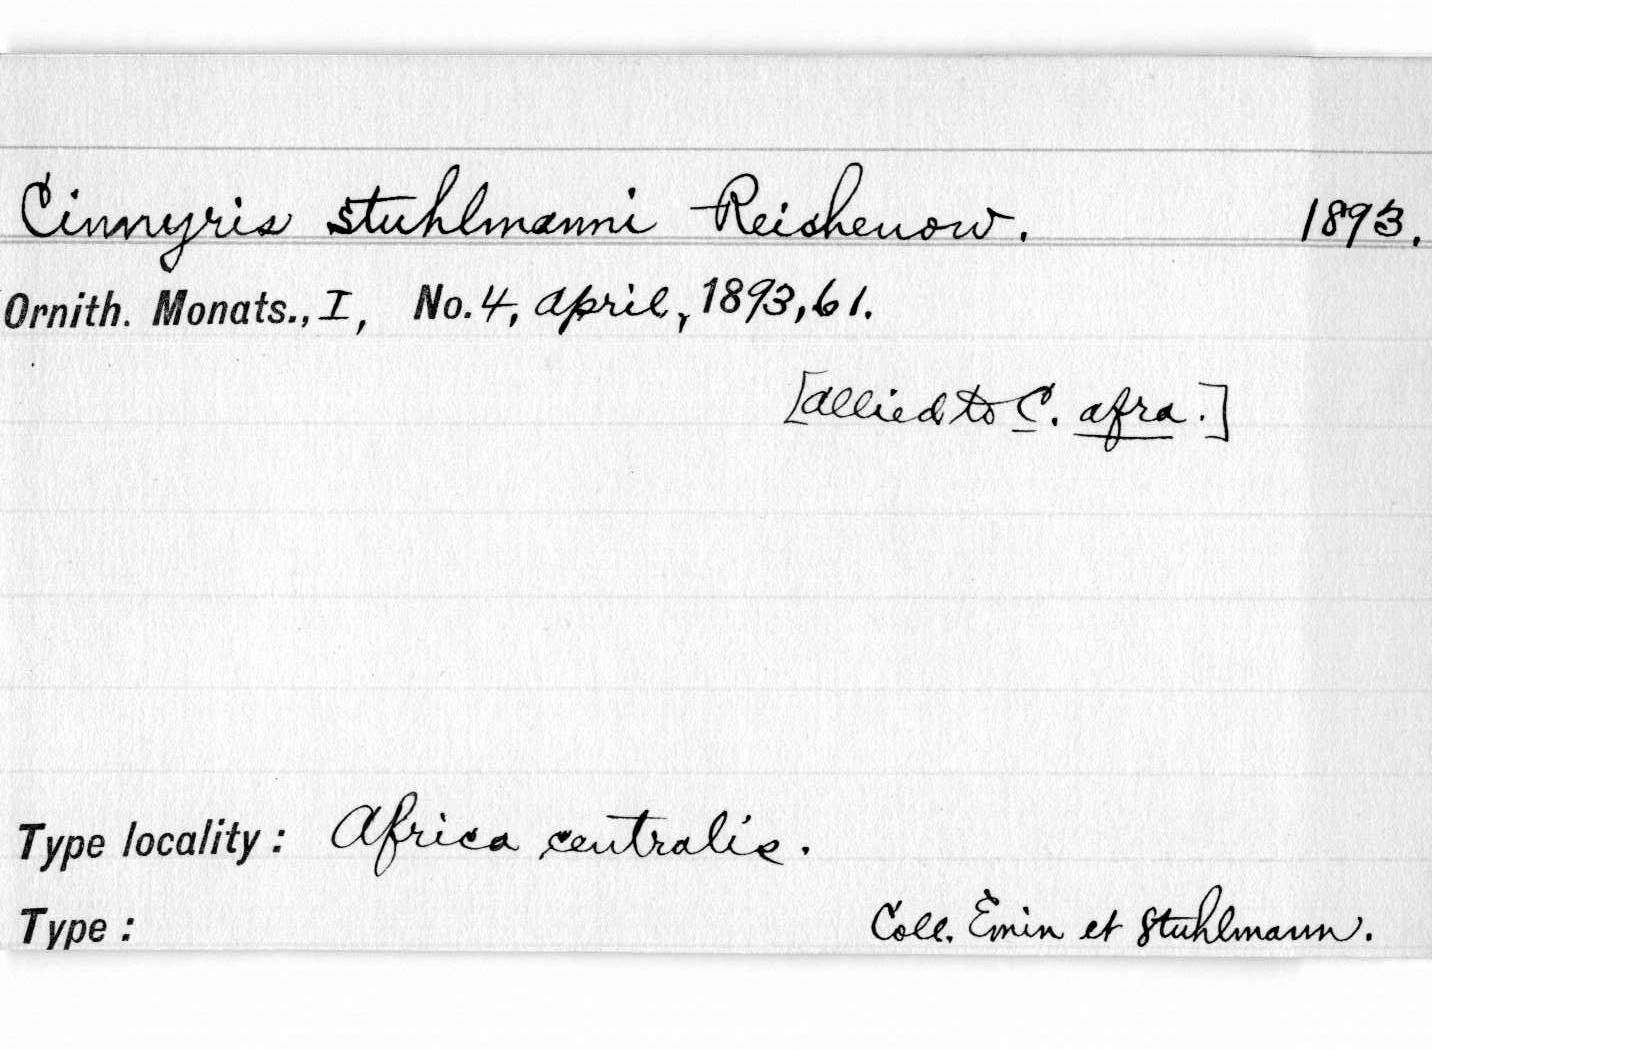 Cinnyris stuhlmanni Reichenow. 1893.
Ornith. Monats., I, No. 4, April, 1893, 61.
[allied to C. afra.]
Type locality: Africa centralis.
Type: Coll. Emin et Stuhlmann.